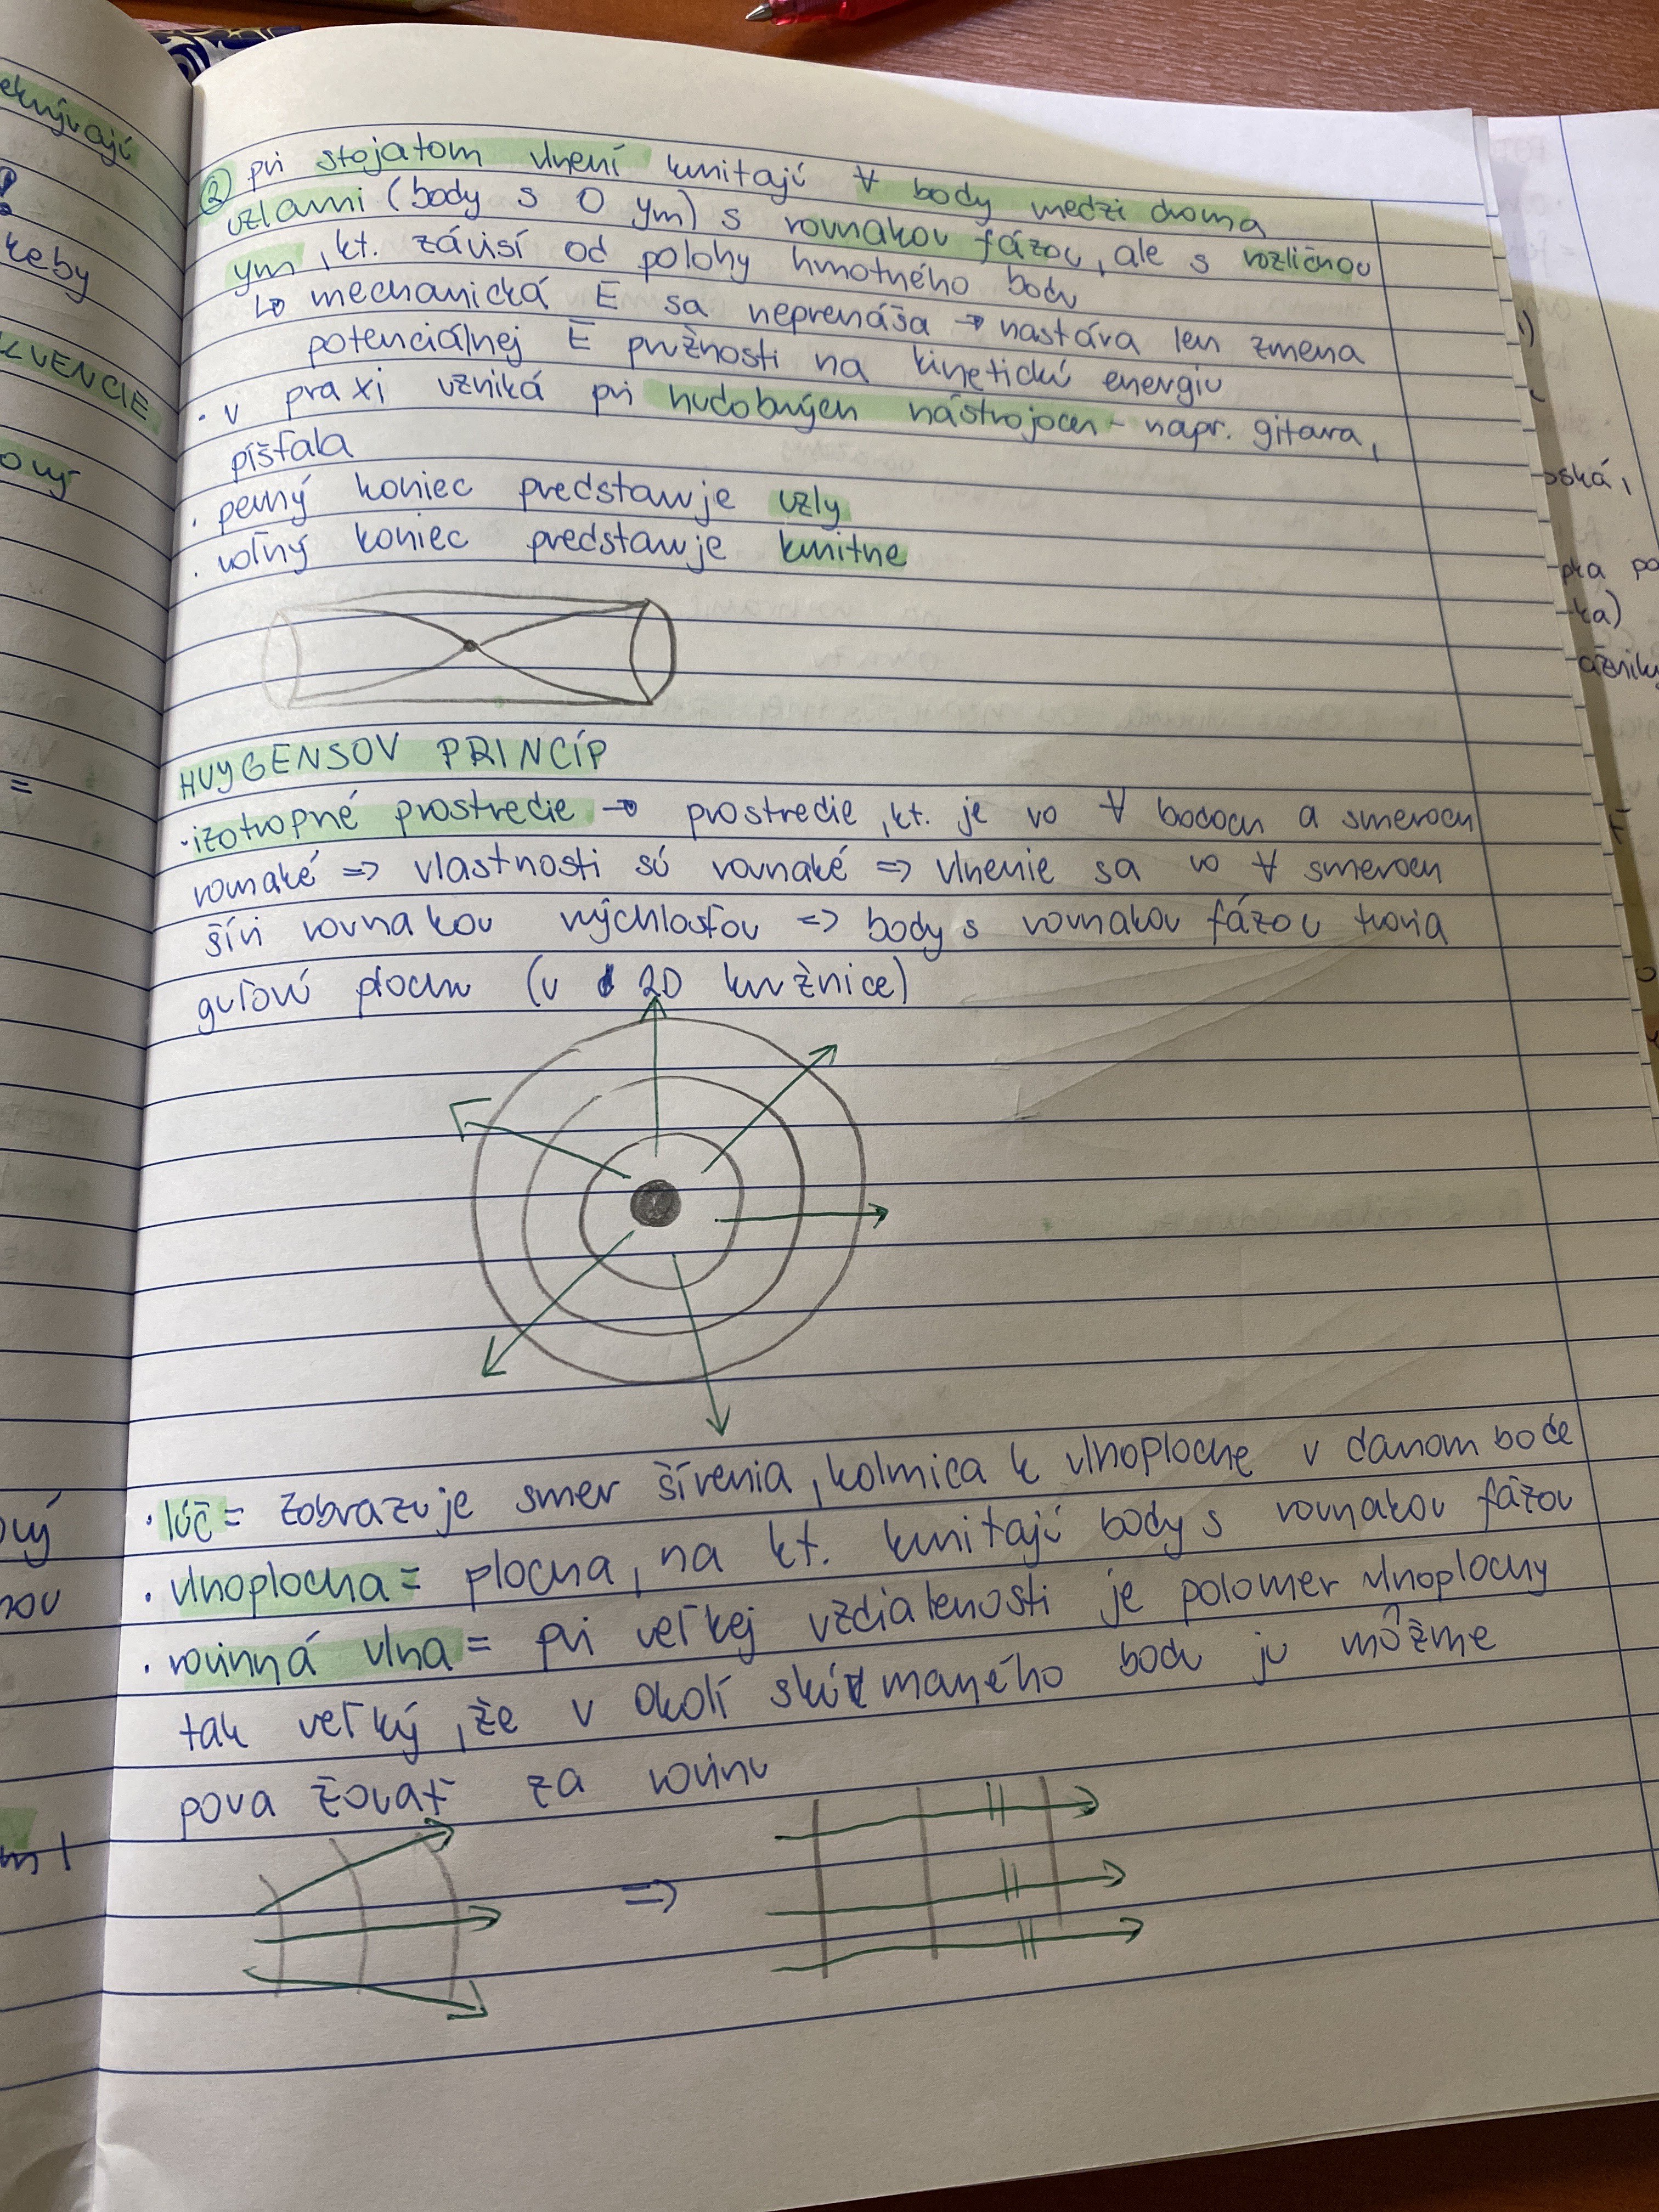 ekrývajú
keby
KVENCIE
ový
=
ový
nou
② pri stojatom vlnení kmitajú ∀ body medzi dvoma
uzlami (body s 0 ym) s rovnakou fázou, ale s rozličnou
ym, kt. závisí od polohy hmotného bodu
↳ mechanická E sa neprenáša → nastáva len zmena
potenciálnej E pružnosti na kinetickú energiu
• v praxi vzniká pri hudobných nástrojoch - napr. gitara,
píšťala
• pevný koniec predstavuje uzly
• voľný koniec predstavuje kmitne
HUYGENSOV PRINCÍP
• izotropné prostredie → prostredie, kt. je vo ∀ bodoch a smeroch
rovnaké => vlastnosti sú rovnaké => vlnenie sa vo ∀ smeroch
šíri rovnakou rýchlosťou => body s rovnakou fázou tvoria
guľovú plochu (v 2D kružnice)
• lúč = zobrazuje smer šírenia, kolmica k vlnoploche v danom bode
• vlnoplocha = plocha, na kt. kmitajú body s rovnakou fázou
• rovinná vlna = pri veľkej vzdialenosti je polomer vlnoplochy
tak veľký, že v okolí skúmaného bodu ju môžme
považovať za rovinu
=>
ská,
pka po
ká)